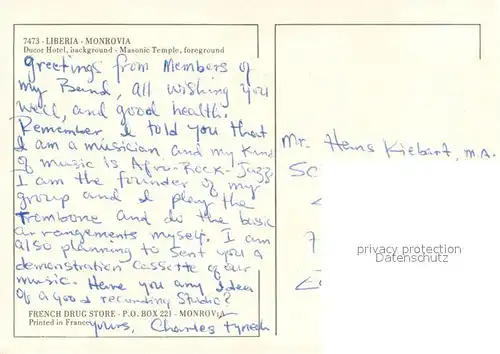 7473 - LIBERIA - MONROVIA
Ducor Hotel, background - Masonic Temple, foreground
Greetings from Members of
my Band, all wishing you
well, and good health.
Remember, I told you that
I am a musician, and my kind
of music is Afro-Rock-Jazz.
I am the founder of my
group and I play the
Trombone and do the basic
arrangements myself. I am
also planning to sent you a
demonstration cassette of our
music. Have you any Idea
of a good recording Studio?
FRENCH DRUG STORE - P.O. BOX 221 - MONROVIA
Printed in France
yours, Charles
Mr. Hans Kiebart, M.A.
privacy protection
Datenschutz